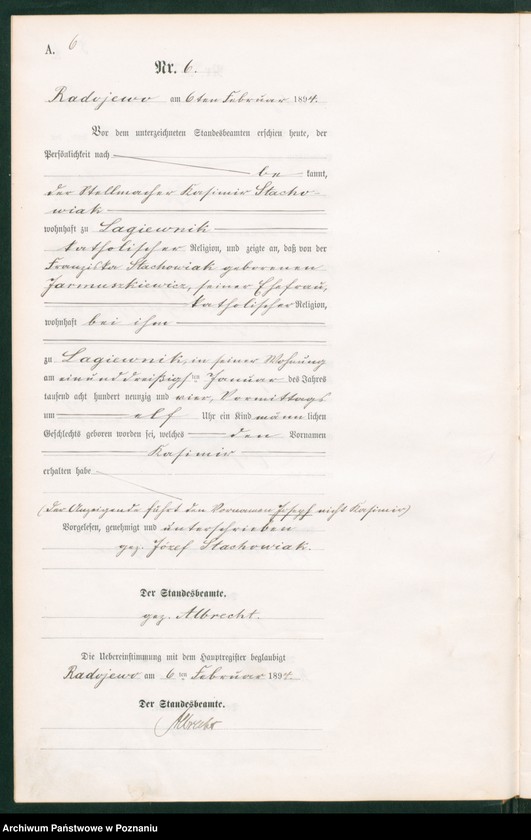 A. 6
Nr. 6.
Radojewo am 6ten Februar 1894.
Vor dem unterzeichneten Standesbeamten erschien heute, der
Persönlichkeit nach
be kannt,
der Stellmacher Kasimir Stacho-
wiak
wohnhaft zu Lagiewnik
katholischer Religion, und zeigte an, daß von der
Franziska Stachowiak geborenen
Jarmuszkiewicz, seiner Ehefrau,
katholischer Religion,
wohnhaft bei ihm
zu Lagiewnik, in seiner Wohnung
am einunddreißigsten Januar des Jahres
tausend acht hundert neunzig und vier, Vormittags
um elf Uhr ein Kind männlichen
Geschlechts geboren worden sei, welches den Vornamen
Kasimir
erhalten habe
(Der Anzeigende führt den Vornamen Joseph nicht Kasimir)
Vorgelesen, genehmigt und unterschrieben
gez. Józef Stachowiak.
Der Standesbeamte.
gez. Albrecht.
Die Uebereinstimmung mit dem Hauptregister beglaubigt
Radojewo am 6ten Februar 1894.
Der Standesbeamte.
Albrecht
Archiwum Państwowe w Poznaniu